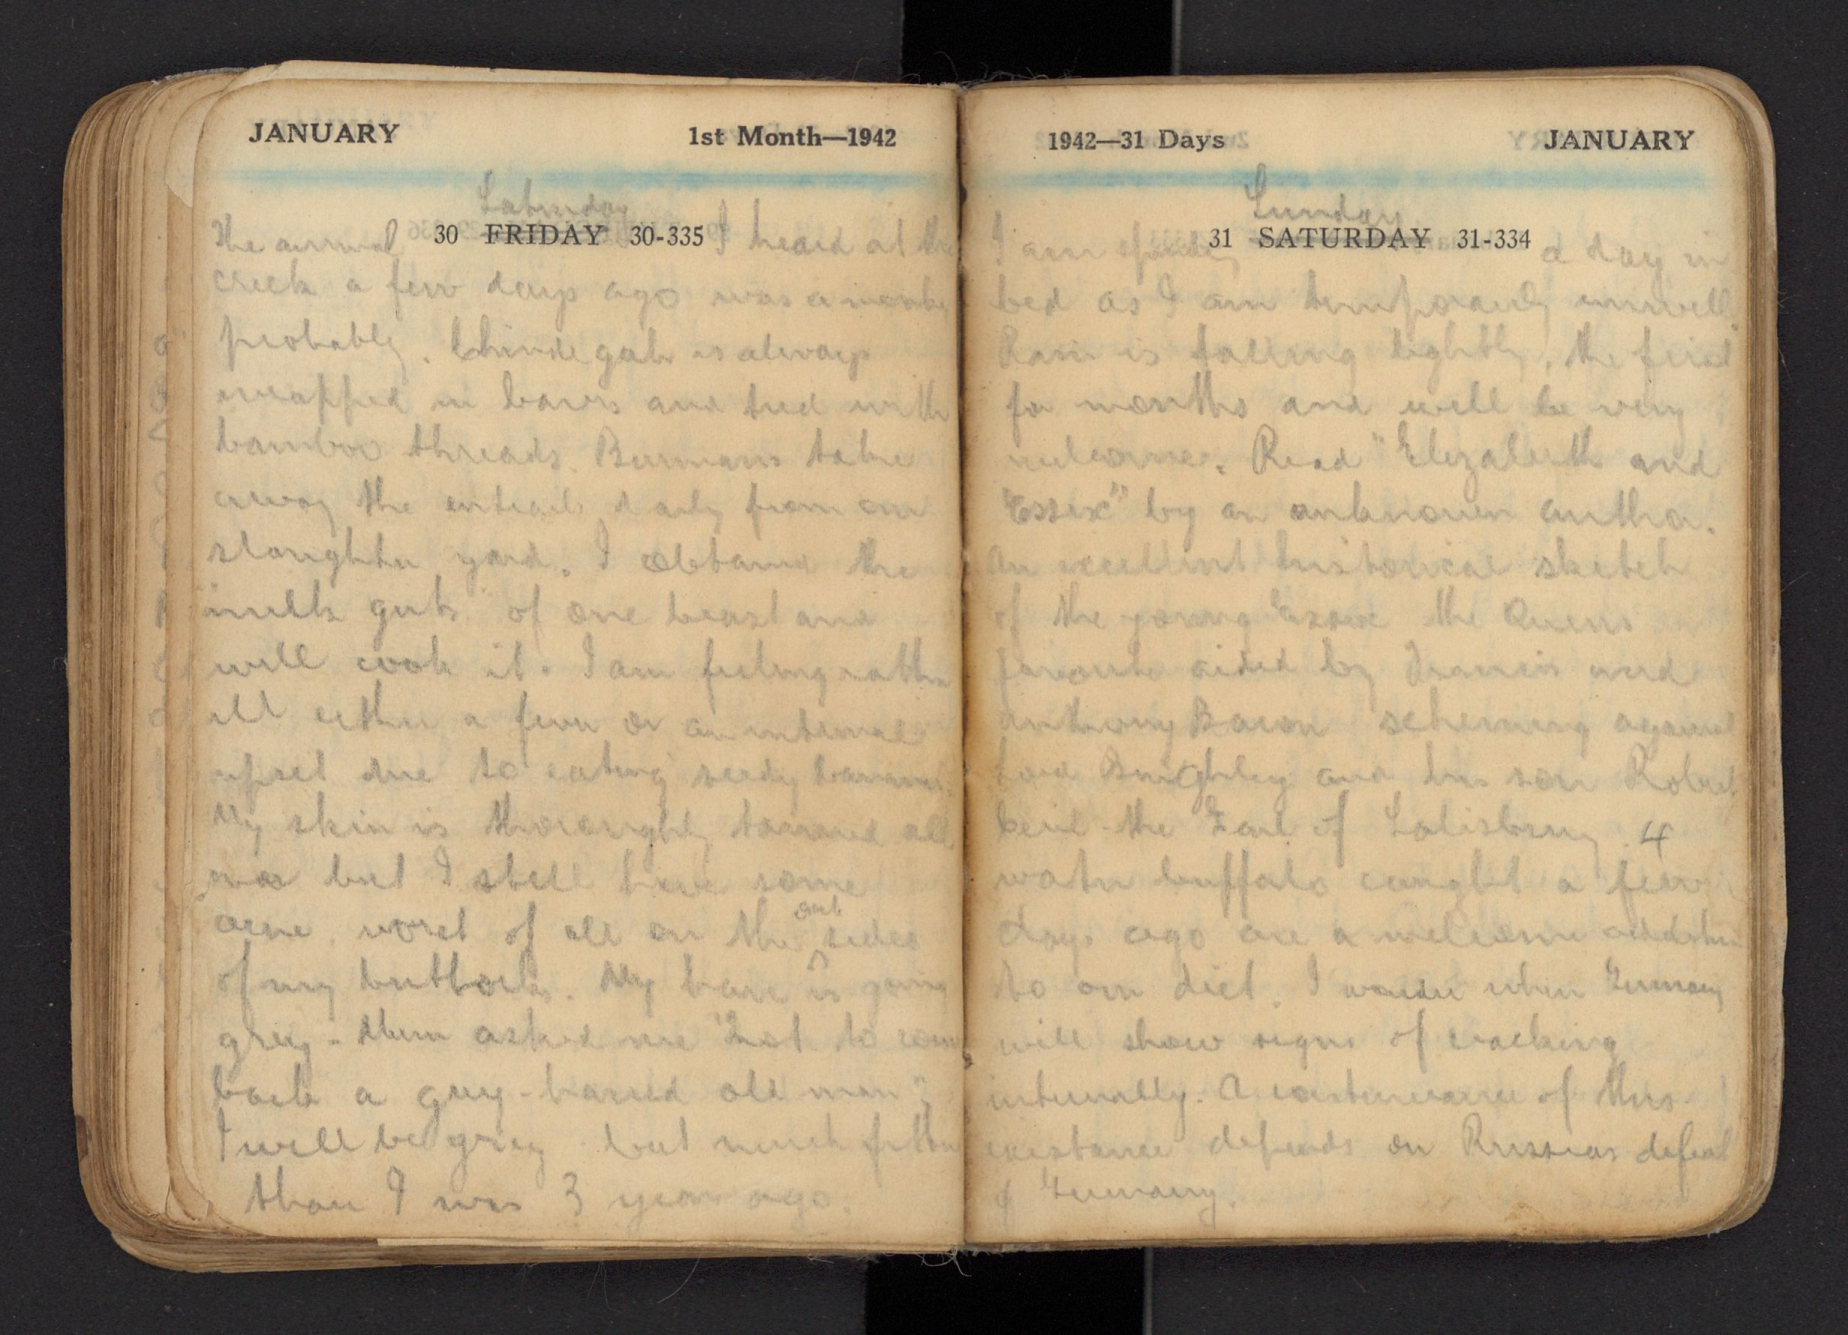 JANUARY 1st Month—1942
Saturday
30 FRIDAY 30-335
The animal I heard at the
creek a few days ago was a monkey
probably. is always
wrapped in leaves and tied with
bamboo threads. Burmans take
away the entrails daily from our
slaughter yard. I obtained the
milk guts of one beast and
will cook it. I am feeling rather
ill either a fever or an internal
upset due to eating seedy bananas.
My skin is thoroughly tanned all
over but I still have some
acne, worst of all on the out sides
of my buttocks. My hair is going
grey - asked me "Not to come
back a grey-haired old man";
I will be grey but much fitter
than I was 3 years ago.
1942—31 Days JANUARY
Sunday
31 SATURDAY 31-334
I am spending a day in
bed as I am temporarily unwell.
Rain is falling lightly, the first
for months and will be very
welcome. Read "Elizabeth and
Essex" by an unknown author.
An excellent historical sketch
of the young Essex the Queens
favourite aided by Francis and
Anthony Bacon scheming against
Lord Burghley and his son Robert
Cecil the Earl of Salisbury. 4
water buffalo caught a few
days ago are a welcome addition
to our diet. I wonder when Germany
will show signs of cracking
internally. A continuance of this
existance depends on Russias defeat
of Germany.